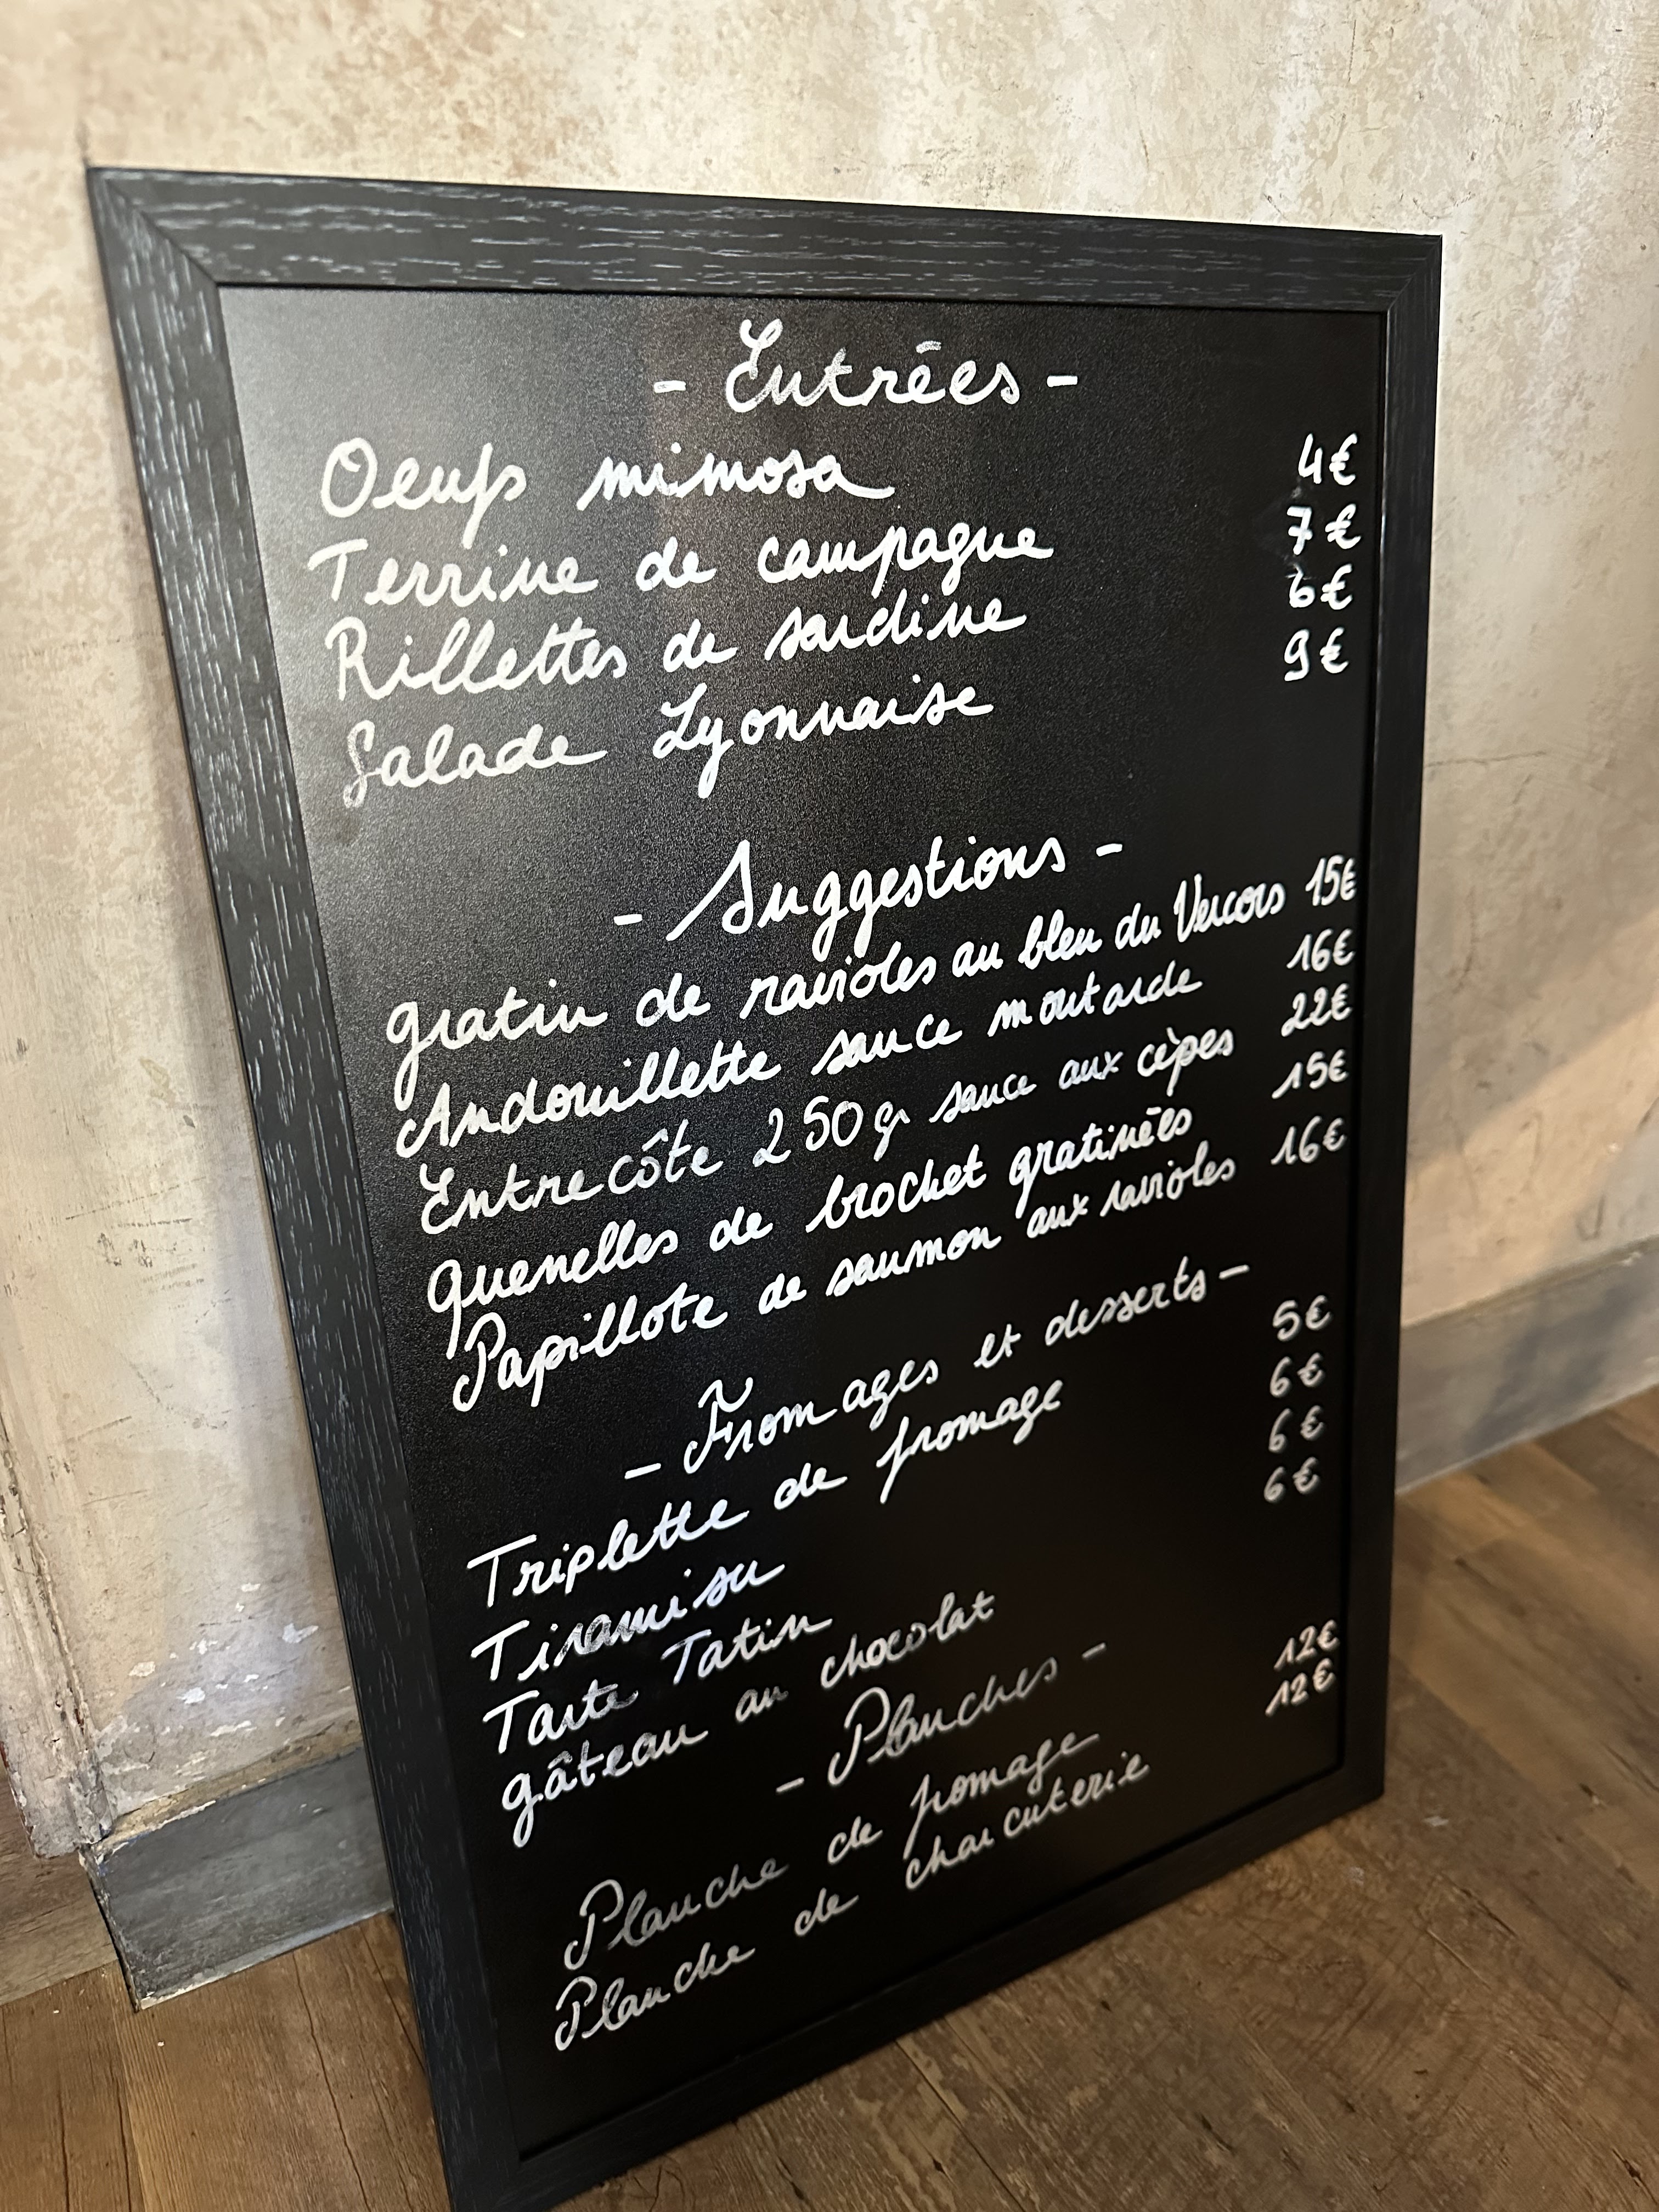 - Entrées -
Oeufs mimosa 4€
Terrine de campagne 7€
Rillettes de sardine 6€
Salade Lyonnaise 9€
- Suggestions -
gratin de ravioles au bleu du Vercors 15€
Andouillette sauce moutarde 16€
Entrecôte 250gr sauce aux cèpes 22€
quenelles de brochet gratinées 15€
Papillote de saumon aux ravioles 16€
- Fromages et desserts -
Triplette de fromage 5€
Tiramisu 6€
Tarte Tatin 6€
gâteau au chocolat 6€
- Planches -
Planche de fromage 12€
Planche de charcuterie 12€